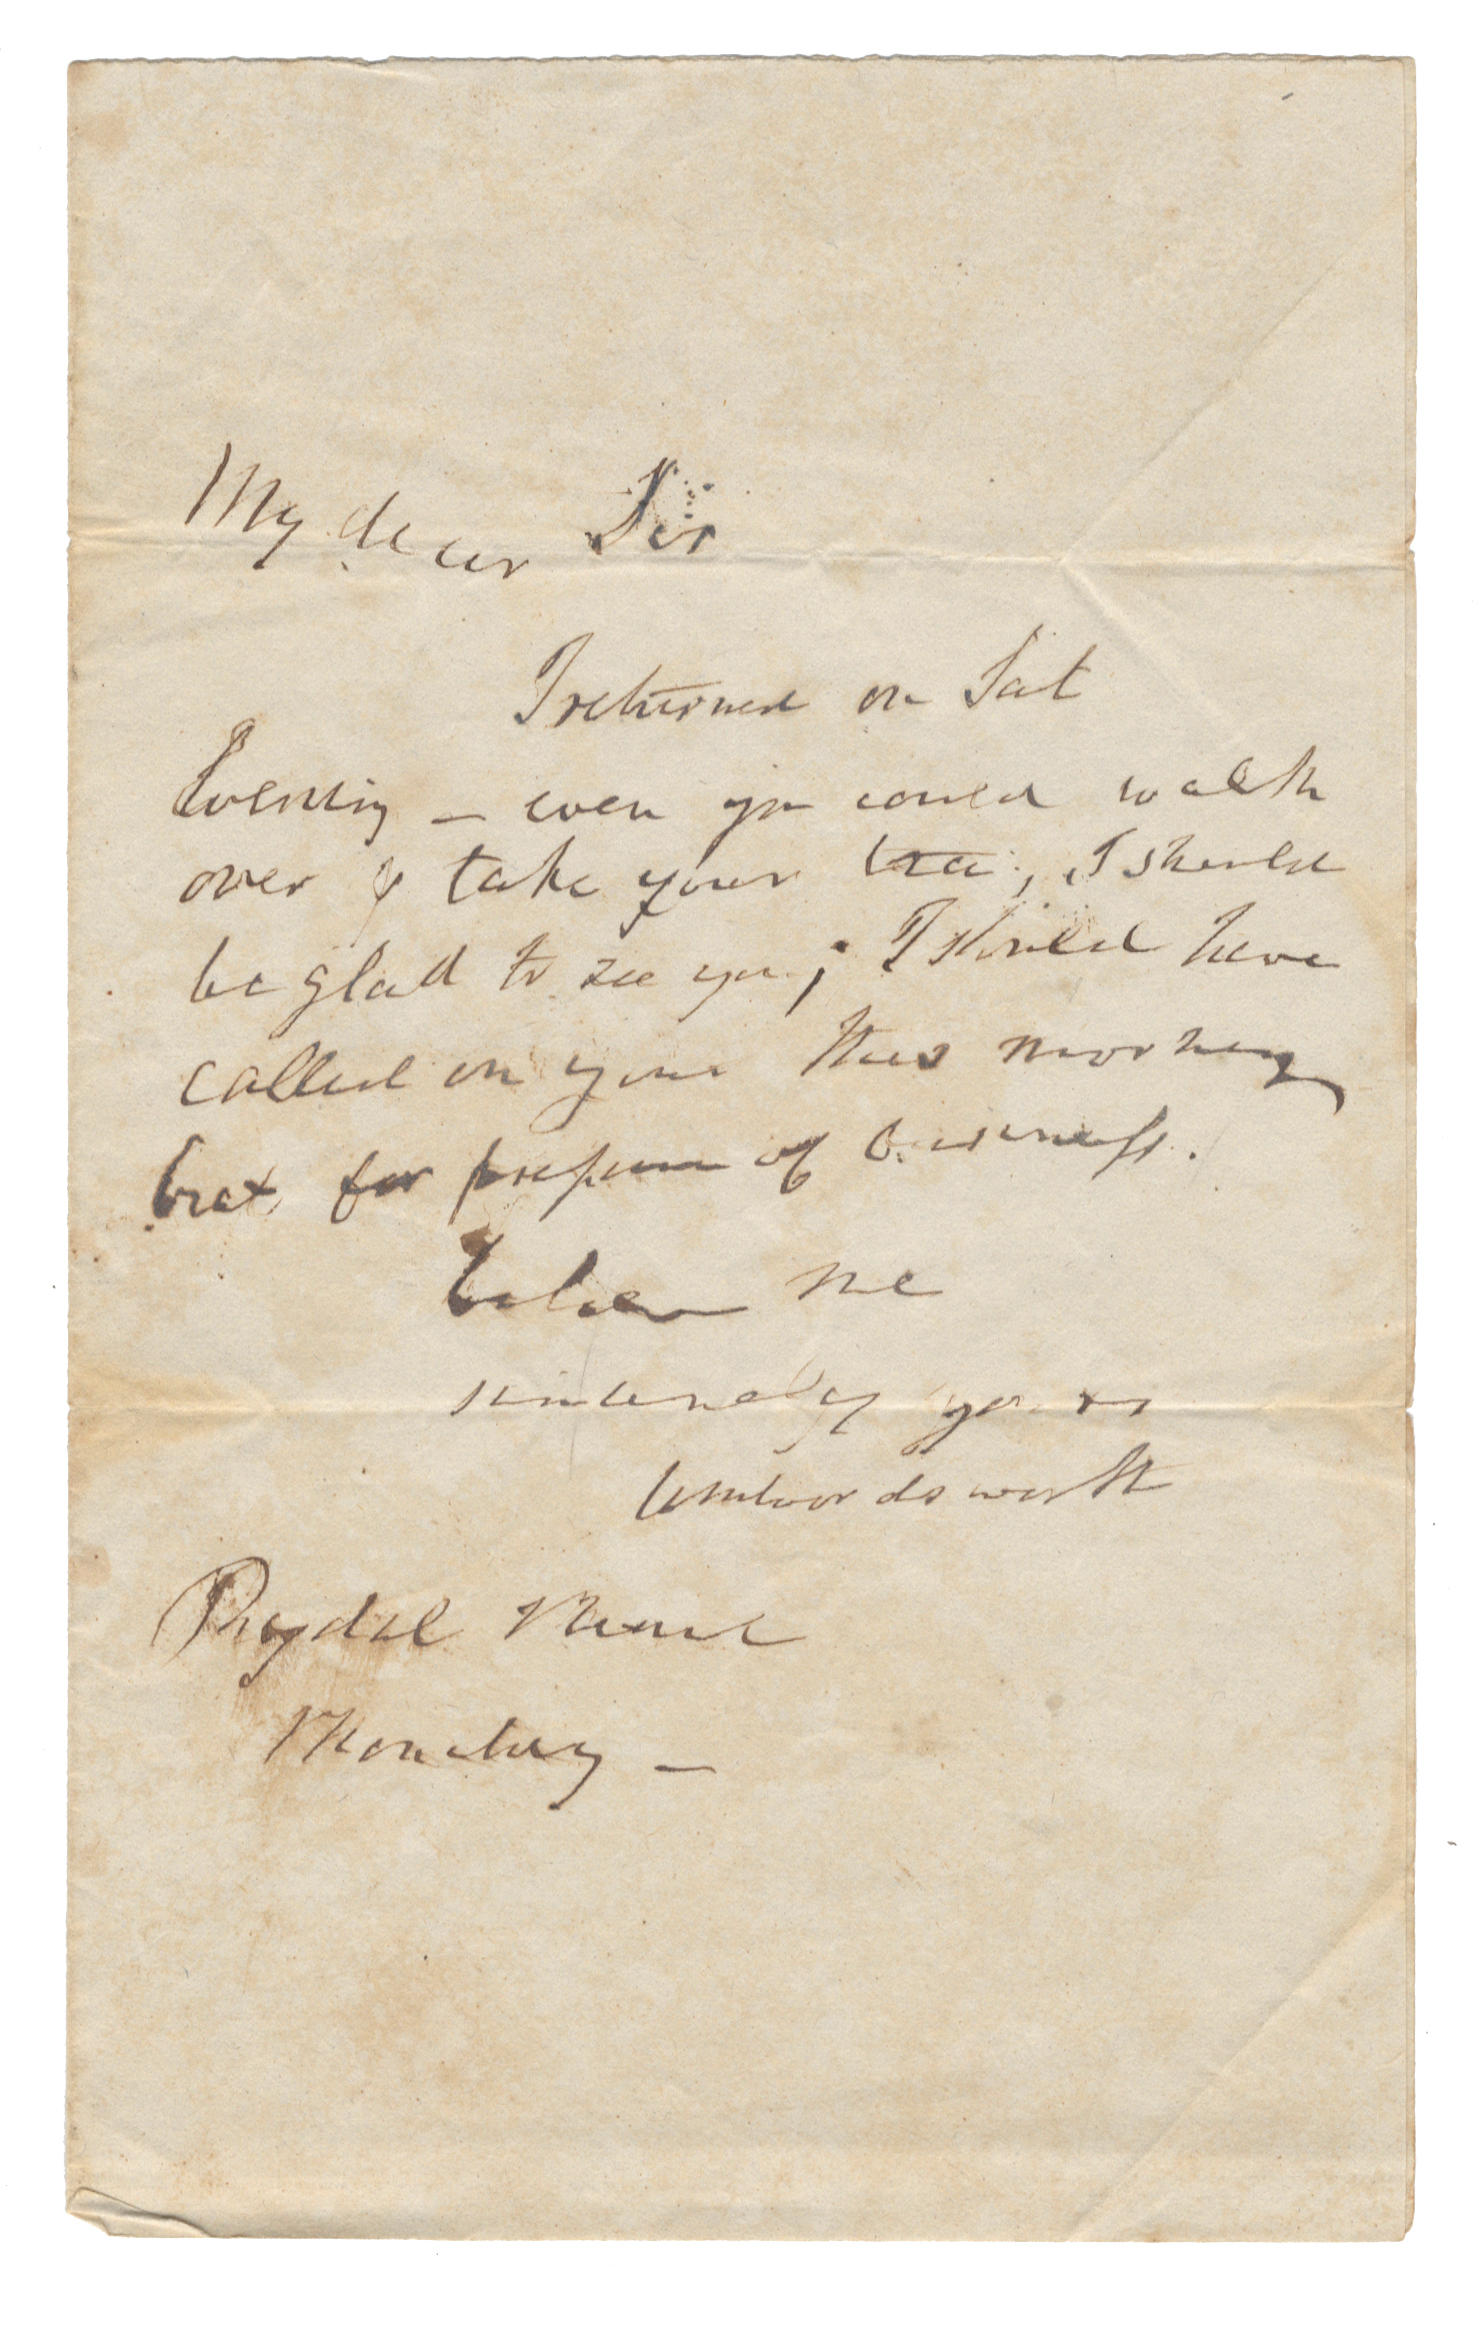 My dear Sir
I returned on Sat
Evening – even you could walk
over & take your tea, I should
be glad to see you; I should have
called on you this morning
but for pressure of business.
believe me
sincerely yours
Wm Wordsworth
Rydal Mount
Monday –